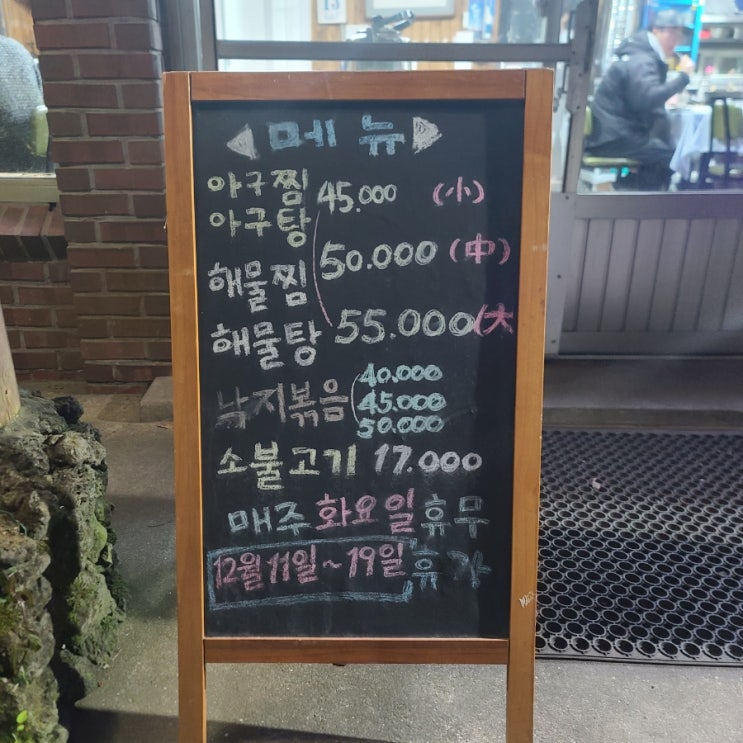 ◁ 메뉴 ▷
아구찜 45.000 (小)
아구탕
해물찜 50.000 (中)
해물탕 55.000 (大
낙지볶음 40.000
45.000
50.000
소불고기 17.000
매주 화요일 휴무
12월 11일~19일 휴가
13